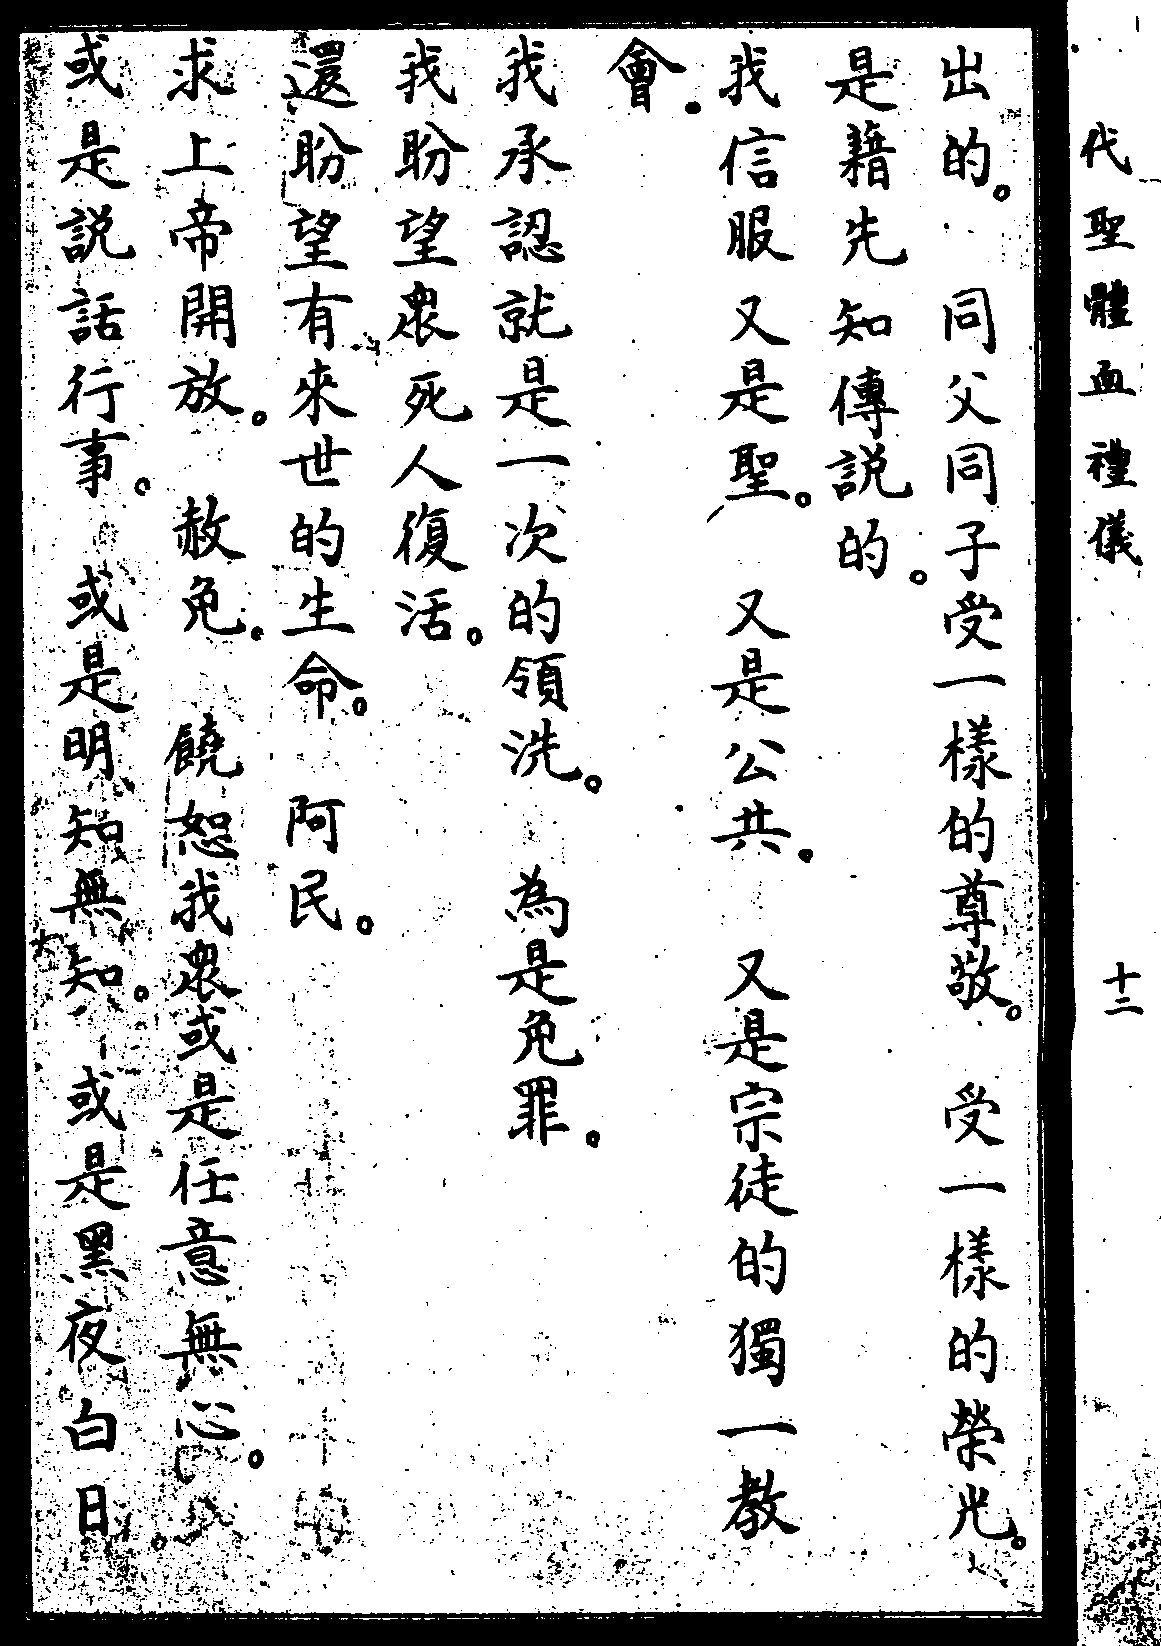 代聖體血禮儀 十二
出的。同父同子受一樣的尊敬。受一樣的榮光。
是藉先知傳說的。
我信服又是聖。又是公共。又是宗徒的獨一教
會。
我承認就是一次的領洗。為是免罪。
我盼望眾死人復活。
還盼望有來世的生命。阿民。
求上帝開放。赦免。饒恕我眾或是任意無心。
或是說話行事。或是明知無知。或是黑夜白日。